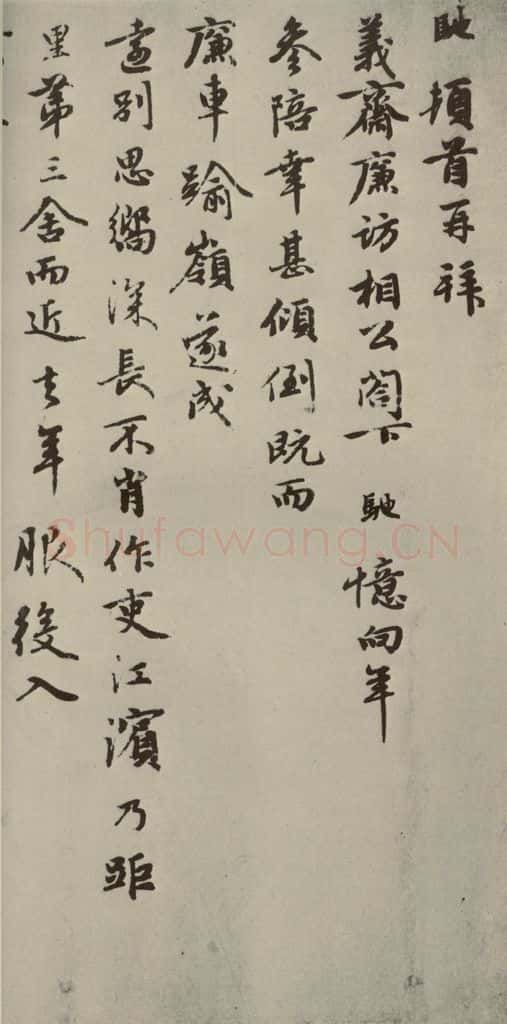 馳頓首再拜
義齋廉访相公閤下馳憶向年
參陪幸甚傾倒既而
廉車踰嶺遂成
遠别思嚮深長不肖作吏江濱乃距
里第三舍而近去年服後入
Shufawang.CN